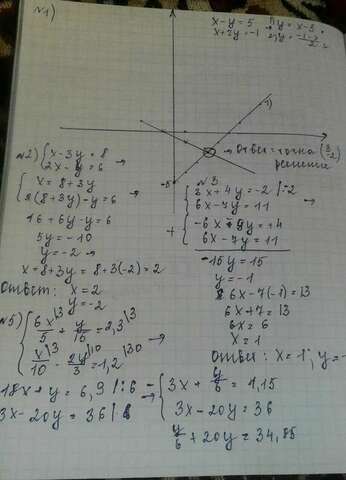 №1)
x-y=5 1)y=x-5
x+2y=-1 → 2)y=
1)
-5
→ Ответ: точка (3/-2)
решение
№2) { x-3y=8
2x-y=6 →
{ x=8+3y
2(8+3y)-y=6
16+6y-y=6
5y=-10
y=-2 →
x=8+3y=8+3(-2)=2
Ответ: x=2
y=-2
№3
{ 3x+4y=-2 |·-2
6x-7y=11 →
+ { -6x-8y=+4
6x-7y=11
-15y=15
y=-1
6x-7(-1)=13
6x+7=13
6x=6
x=1
Ответ: x=1; y=-
№5) { 6x/5 + y/15 = 2,3
x/10 - 2y/3 = 1,2
18x+y=6,9 |:6
3x-20y=36
→ { 3x+y/6=1,15
3x-20y=36
y/6+20y=34,85